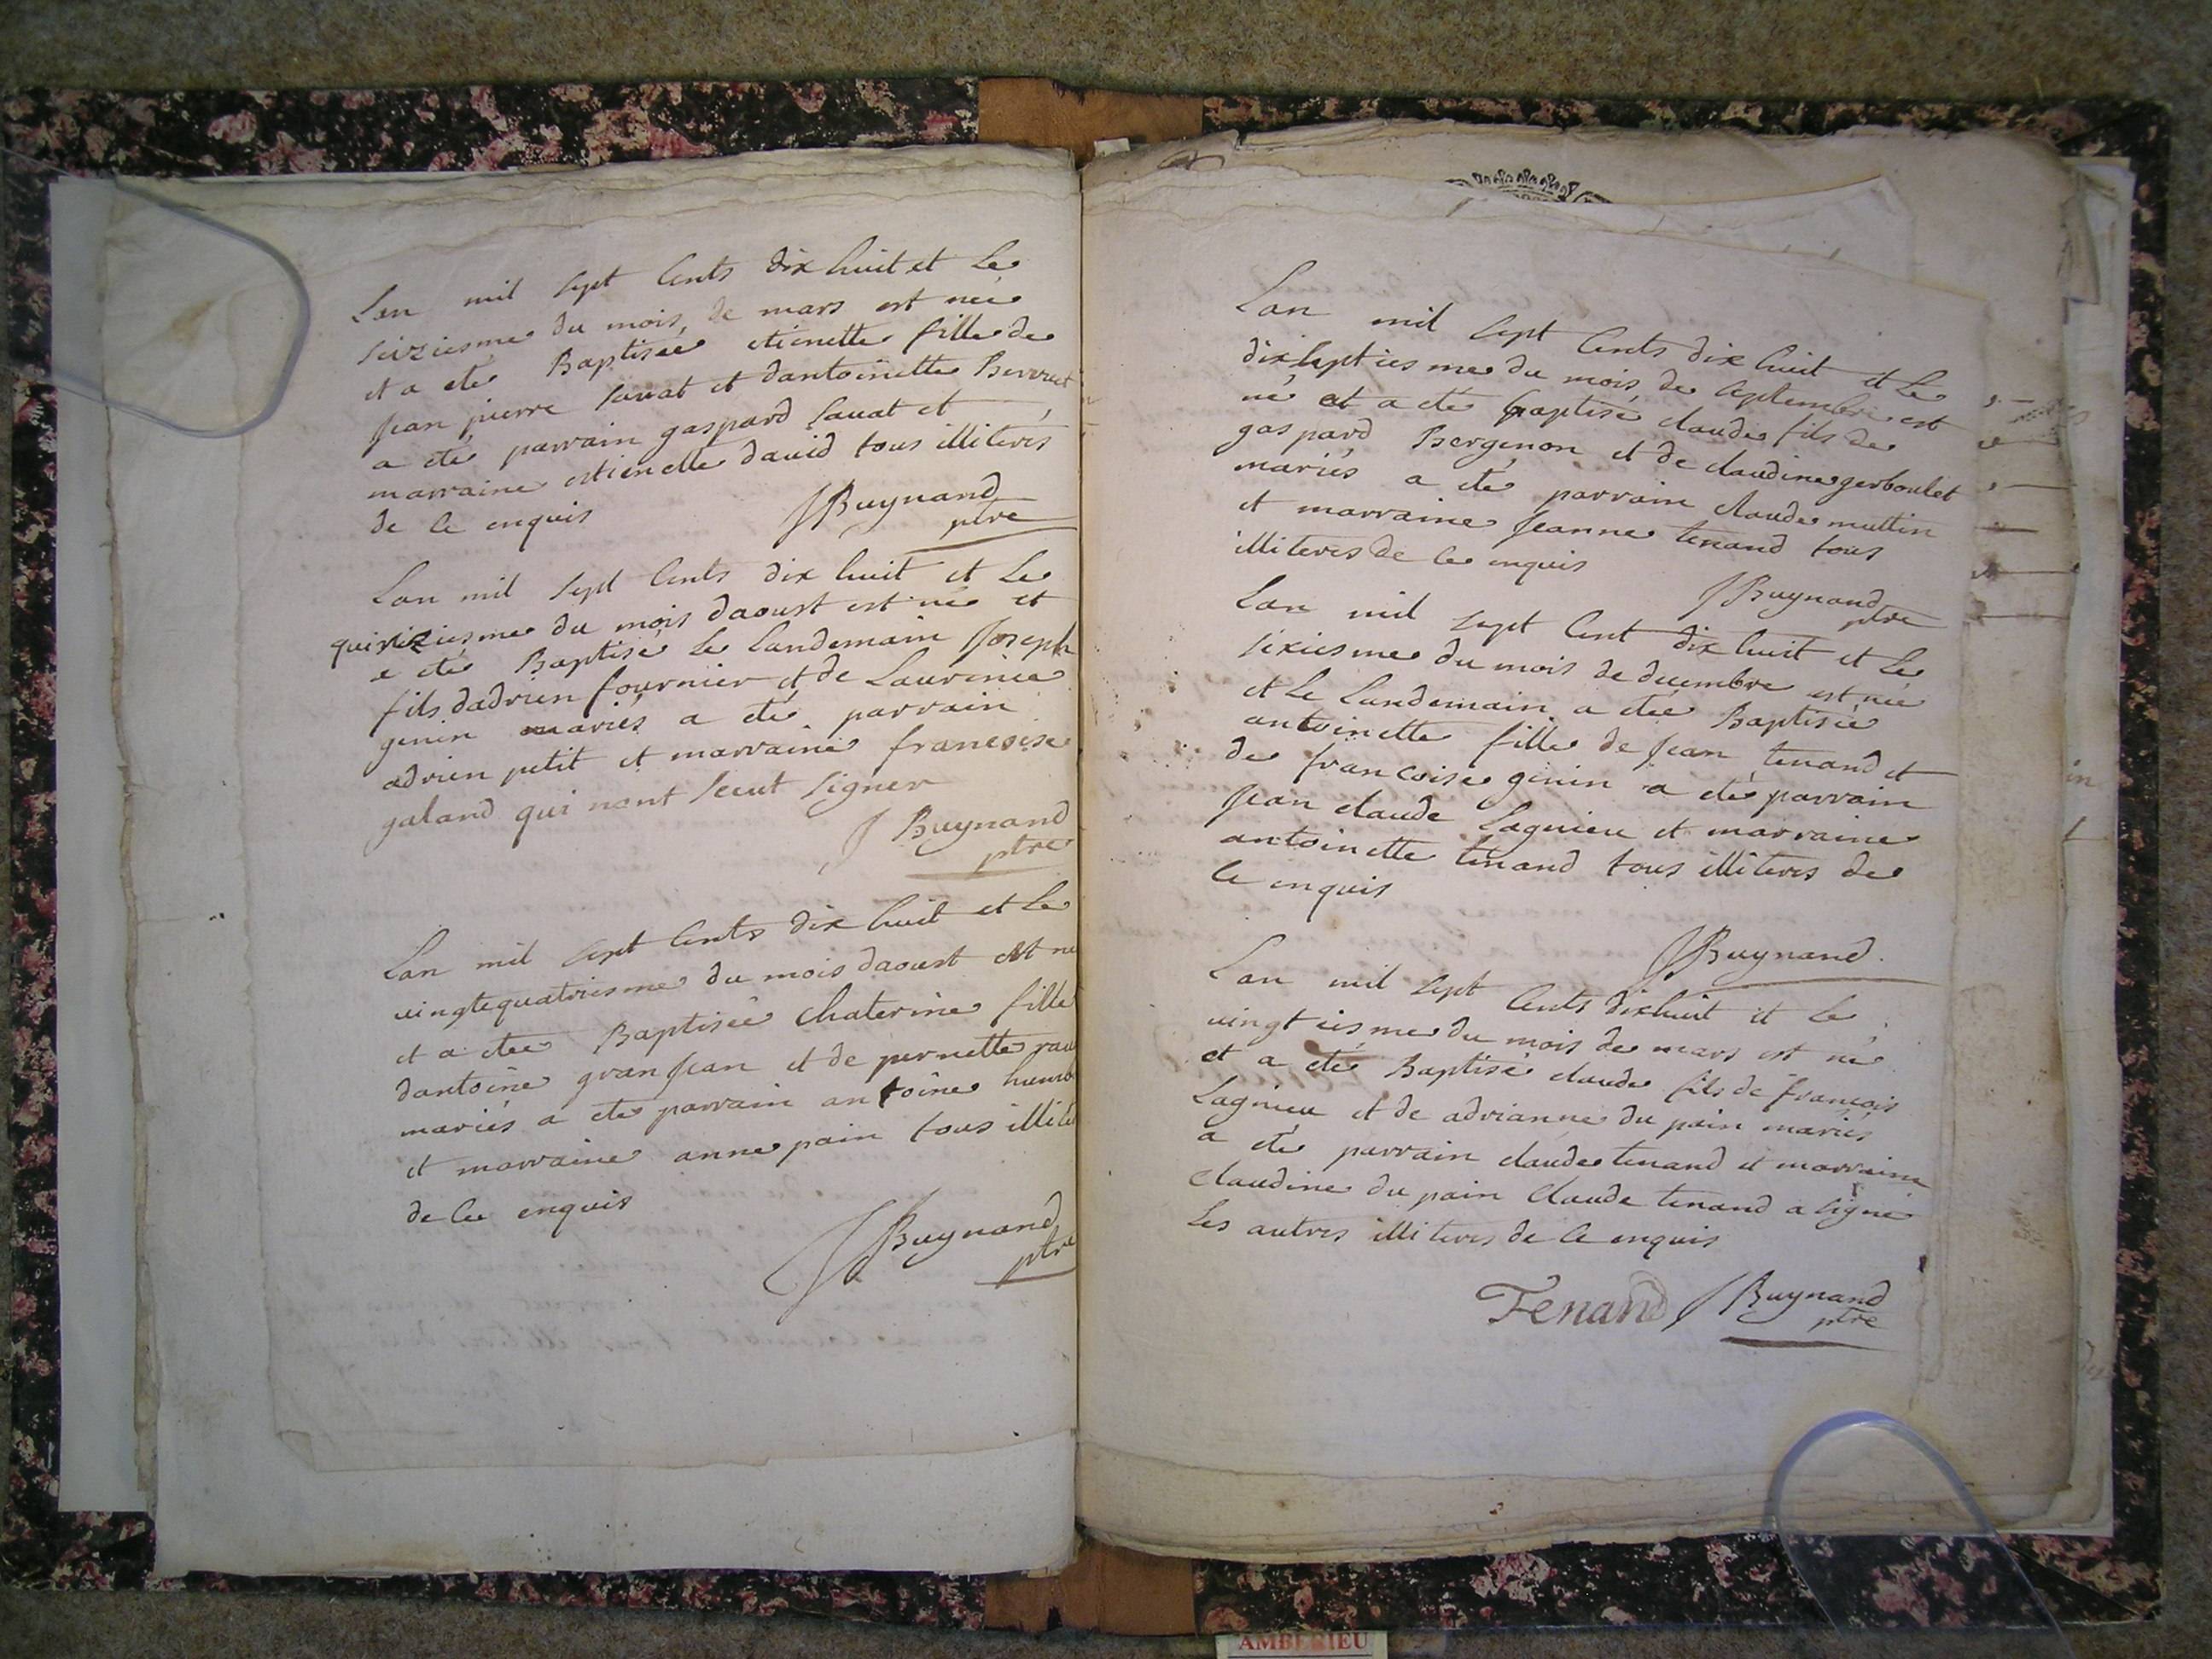 Lan mil sept Cents dix huit et Le
seiziesme du mois de mars est née
et a eté Baptiseé etienette fille de
Jean pierre sauat et dantoinette Berrvet
a eté parrain gaspard sauat et
marraine estienette dauid tous illiterés
de Ce enquis
JBuynand
ptre
Lan mil sept Cents dix huit et Le
quinziesme du mois daoust est né et
a eté Baptisé Le Landemain Joseph
fils dadrien fournier et de Laurence
genin mariés a eté parrain
adrien petit et marraine francoise
galand qui nont sceut signer
J Buynand
ptre
Lan mil sept Cents dix huit et Le
uingtequatriesme du mois daoust est né
et a eteé Baptiseé Chaterine fille
dantoine granjean et de pernette
mariés a eté parrain antoine
et marraine anne pain tous
de Ce enquis
JBuynand
ptre
Lan mil sept Cents dix huit et Le
dixseptiesme du mois de septembre est
né et a eté Baptisé claude fils de
gaspard Bergenon et de claudine gerboulet
mariés a eté parrain claude muttin
et marraine Jeanne tenand tous
illiterés de Ce enquis
JBuynand
ptre
Lan mil sept Cent dix huit et Le
sixiesme du mois de decembre est née
et Le Landemain a eteé Baptiseé
antoinette fille de Jean tenand et
de francoise genin a eté parrain
Jean claude Lagnieu et marraine
antoinette tenand tous illiterés de
Ce enquis
JBuynand
Lan mil sept Cents dixhuit et Le
uingtiesme du mois de mars est né
et a eté Baptisé claude fils de francois
Lagnieu et de adrianne du pain mariés
a eté parrain claude tenand et marraine
Claudine du pain Claude tenand a signé
Les autres illiterés de Ce enquis
Tenand JBuynand
ptre
AMBERIEU